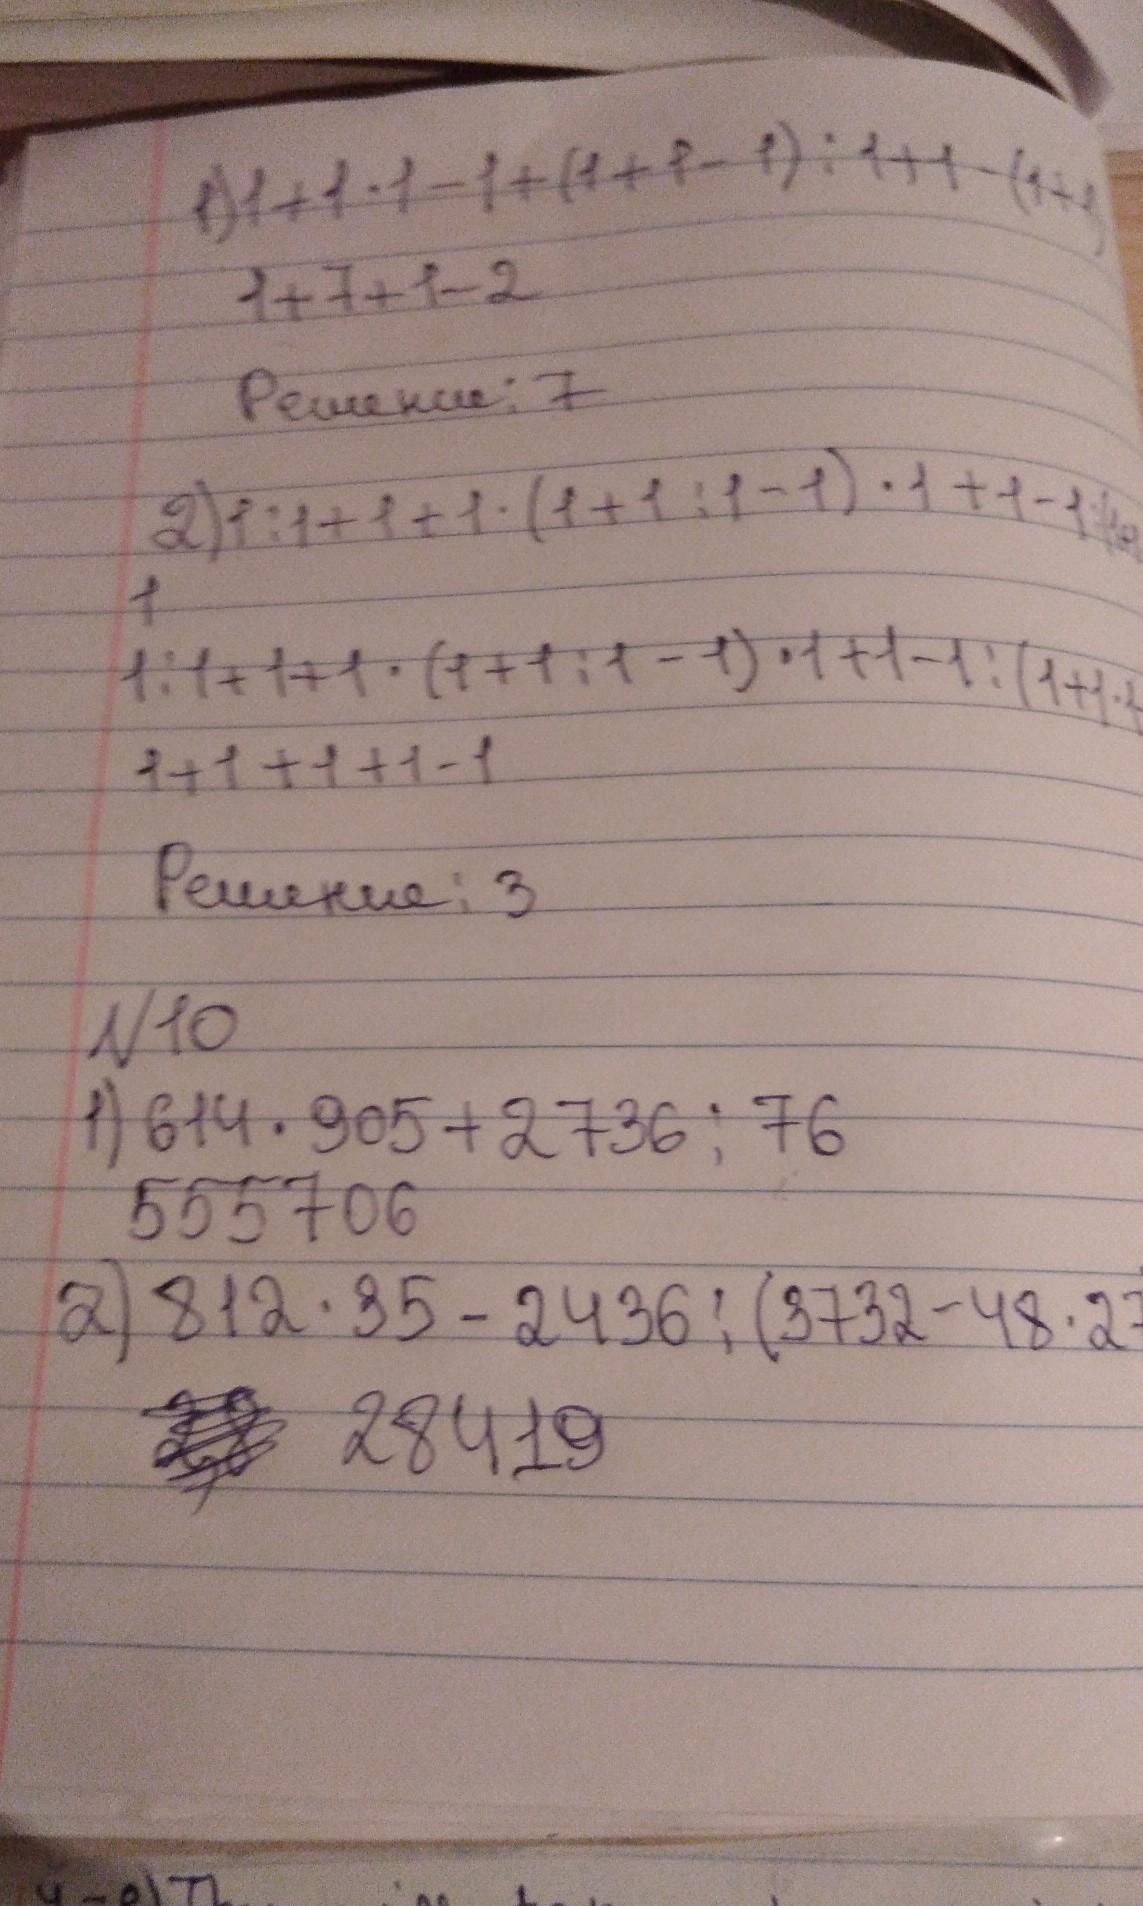 1) 1+1·1-1+(1+1-1):1+1-(1+1)
1+7+1-2
Решение: 7
2) 1:1+1+1·(1+1:1-1)·1+1-1:
1
1:1+1+1·(1+1:1-1)·1+1-1:(1+1·1
1+1+1+1-1
Решение: 3
N10
1) 614·905+2736:76
555706
2) 812·35-2436:(3732-48·27
28419